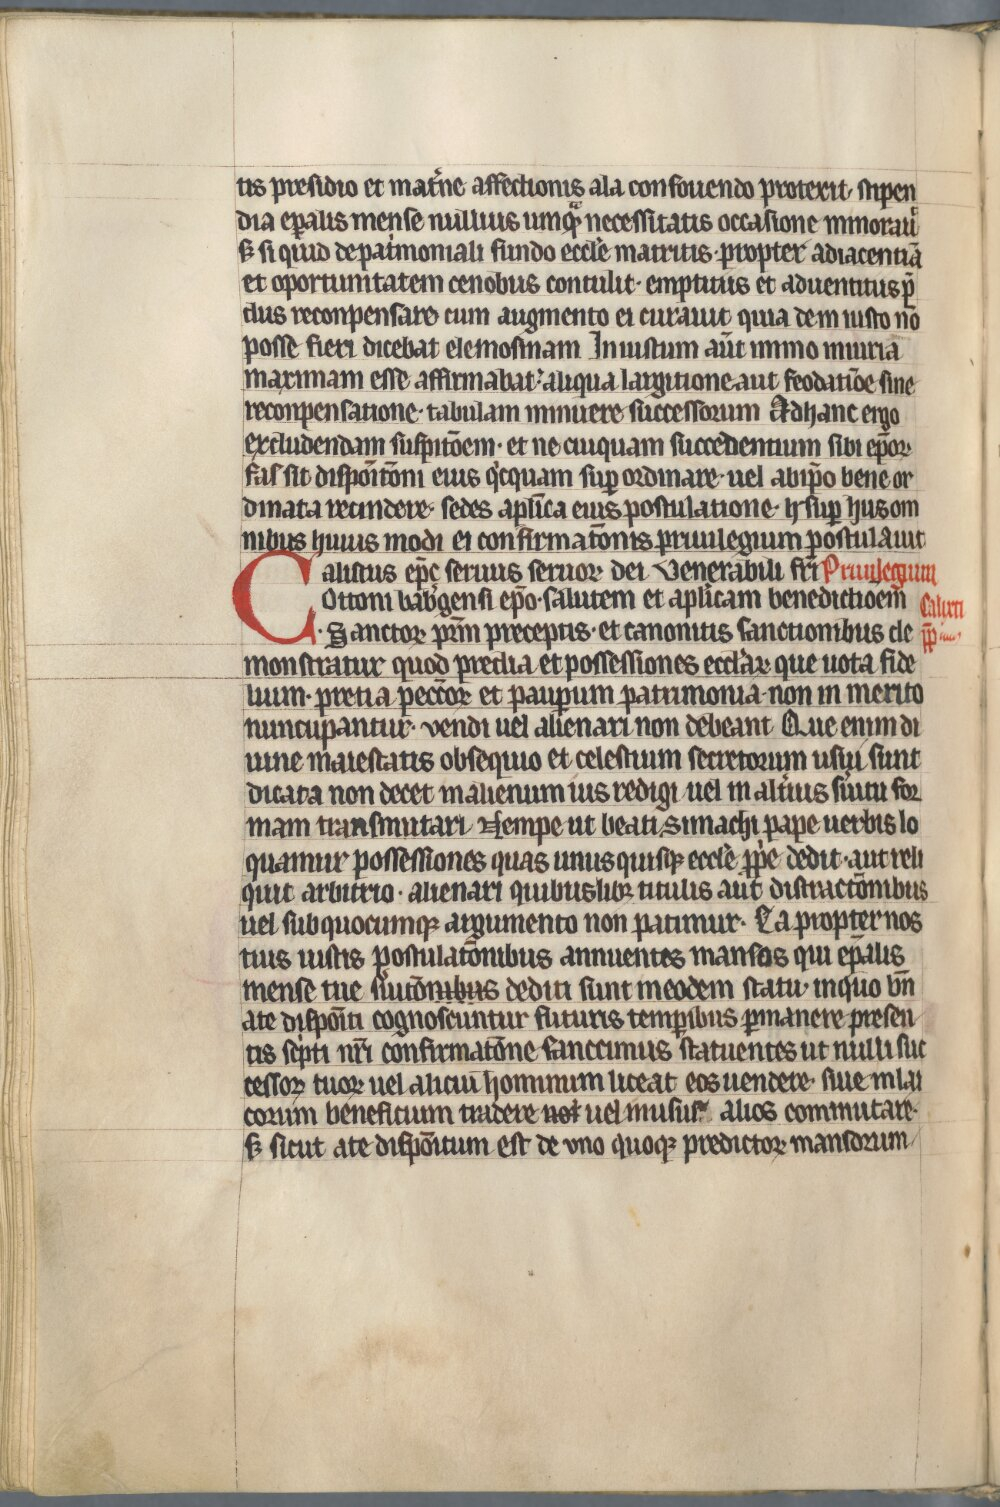 tis presidio et mat̓ne affectionis ala confouendo protexit· stipen
dia ep̄alis mense nullius umq̄ᵃ necessitatis occasione minorauͣ
s; si quid depat̓moniali fundo eccl̄e matritis· propter adiacentiā
et oportunitatem cenobiis contulit· emptitiis et aduentitiis p̄
diis reconpensare cum augmento ei curauit quia dem iusto nō
posse fieri dicebat elemosinam Iniustum aūt immo iniuria
maximam esse affirmabat· aliqua largitione aut feodatiōe sine
reconpensatione· tabulam minuere successorum Adhanc ergo
excludendam suspitōem· et ne cuiquam succedentium sibi ep̄oꝝ
fas sit dispoītōni eius q̓cquam suꝑ ordinare· uel abip̄o bene or
dinata recindere· sedes apl̄ica eius postulatione· h̓ suꝑ hiis om
nibus huius modi ei confirmatōnis priuilegium postulauit
Calistus ep̄c seruus seruoꝝ dei Venerabili fr̄i Priuilegium
Ottoni bab̄gensi ep̄o· salutem et apl̄icam benedictioēm Calixti
· Sanctoꝝ pr̄m preceptis· et canonitis sanctionibus de pp̄ ·iiii·
monstratur quod predia et possessiones eccl̄aꝝ que uota fide
lium· pretia pecc̄oꝝ et pauꝑum patrimonia· non in merito
nuncupantur· vendi uel alienari non debeant Que enim di
uine maiestatis obsequio et celestium secretorum usui sunt
dicata non decet inalienum ius redigi uel in alt̓ius s̓uitu for
mam transmutari Nempe ut beati Simachi pape uerbis lo
quamur possessiones quas unusquisqꝫ eccl̄e pp̄e dedit· aut reli
quit arbitrio· alienari quibuslibꝫ titulis aut distractōnibus
uel subquocumqꝫ argumento non patimur· Ea propter nos
tuis iustis postulatōnibus annuentes mansos qui ep̄alis
mense tue s̓uitōnibus dediti sunt ineodem statu· inquo bn̄
ate dispoīti cognoscuntur futuris temꝑibus ꝑmanere presen
tis sc̓pti nr̄i confirmatōne sanccimus statuentes ut nulli suc
cessoꝝ tuoꝝ uel alicui hominum liceat eos uendere· siue inlai
corum beneficium tradere uel inusus alios commutare·
s; sicut ate dispōitum est de vno quoqꝫ predictoꝝ mansorum